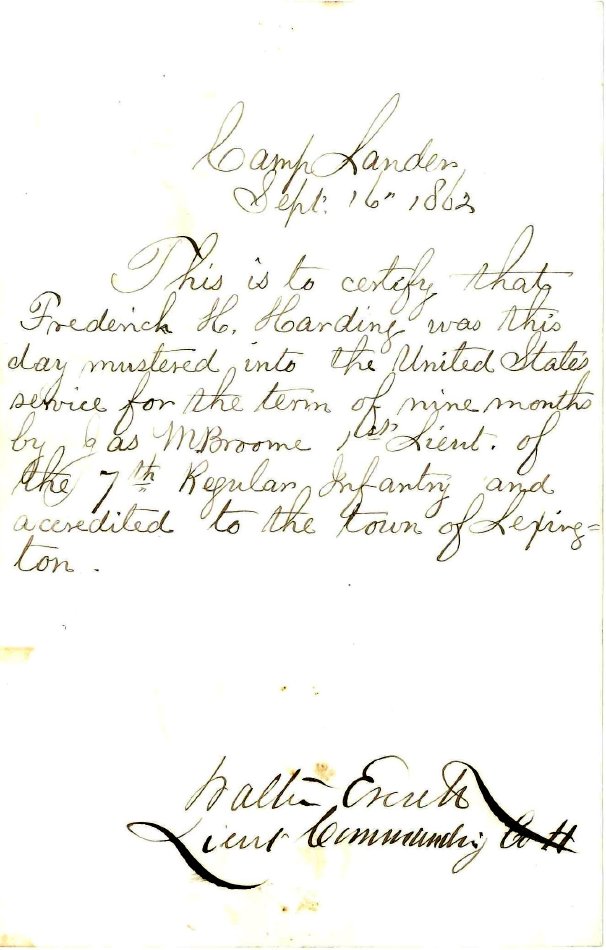 Camp Lander
Sept. 16" 1862
This is to certify that
Frederick H. Harding was this
day mustered into the United States
service for the term of nine months
by Jas M. Broome 1st Lieut. of
the 7th Regular Infantry and
accredited to the town of Lexing=
ton.
Walter Everett
Lieut Commanding Co H